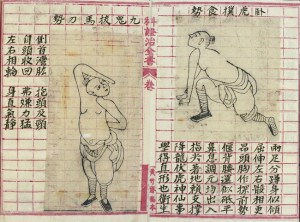 卧虎撲食勢
兩足分蹲身似傾
屈伸左右骽相更
昂頭胸作探前勢
偃背腰還似砥平
鼻息調元均出入
指尖著地賴支撐
降龍伏虎神仙事
學得真形也衛生
科證治全書
卷
九鬼拔馬刀勢
側首彎肱
抱頂及頸
自頭收回
弗嫌力猛
左右相輪
身直氣靜